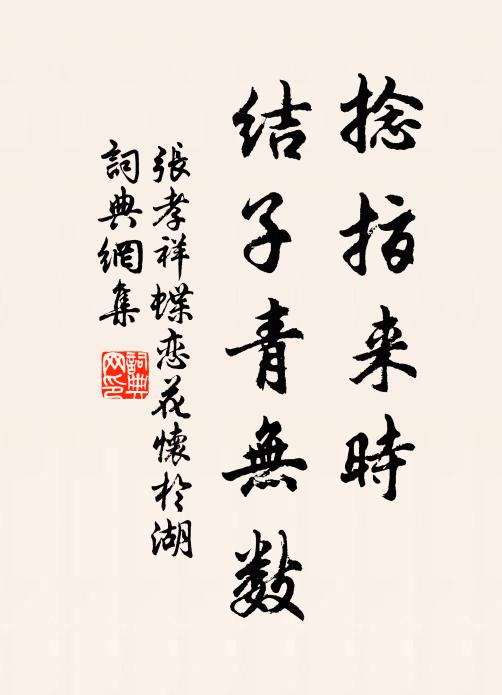 捻指来時
結子青無数
張孝祥蝶恋花懷於湖
詞典網集
詞典网印